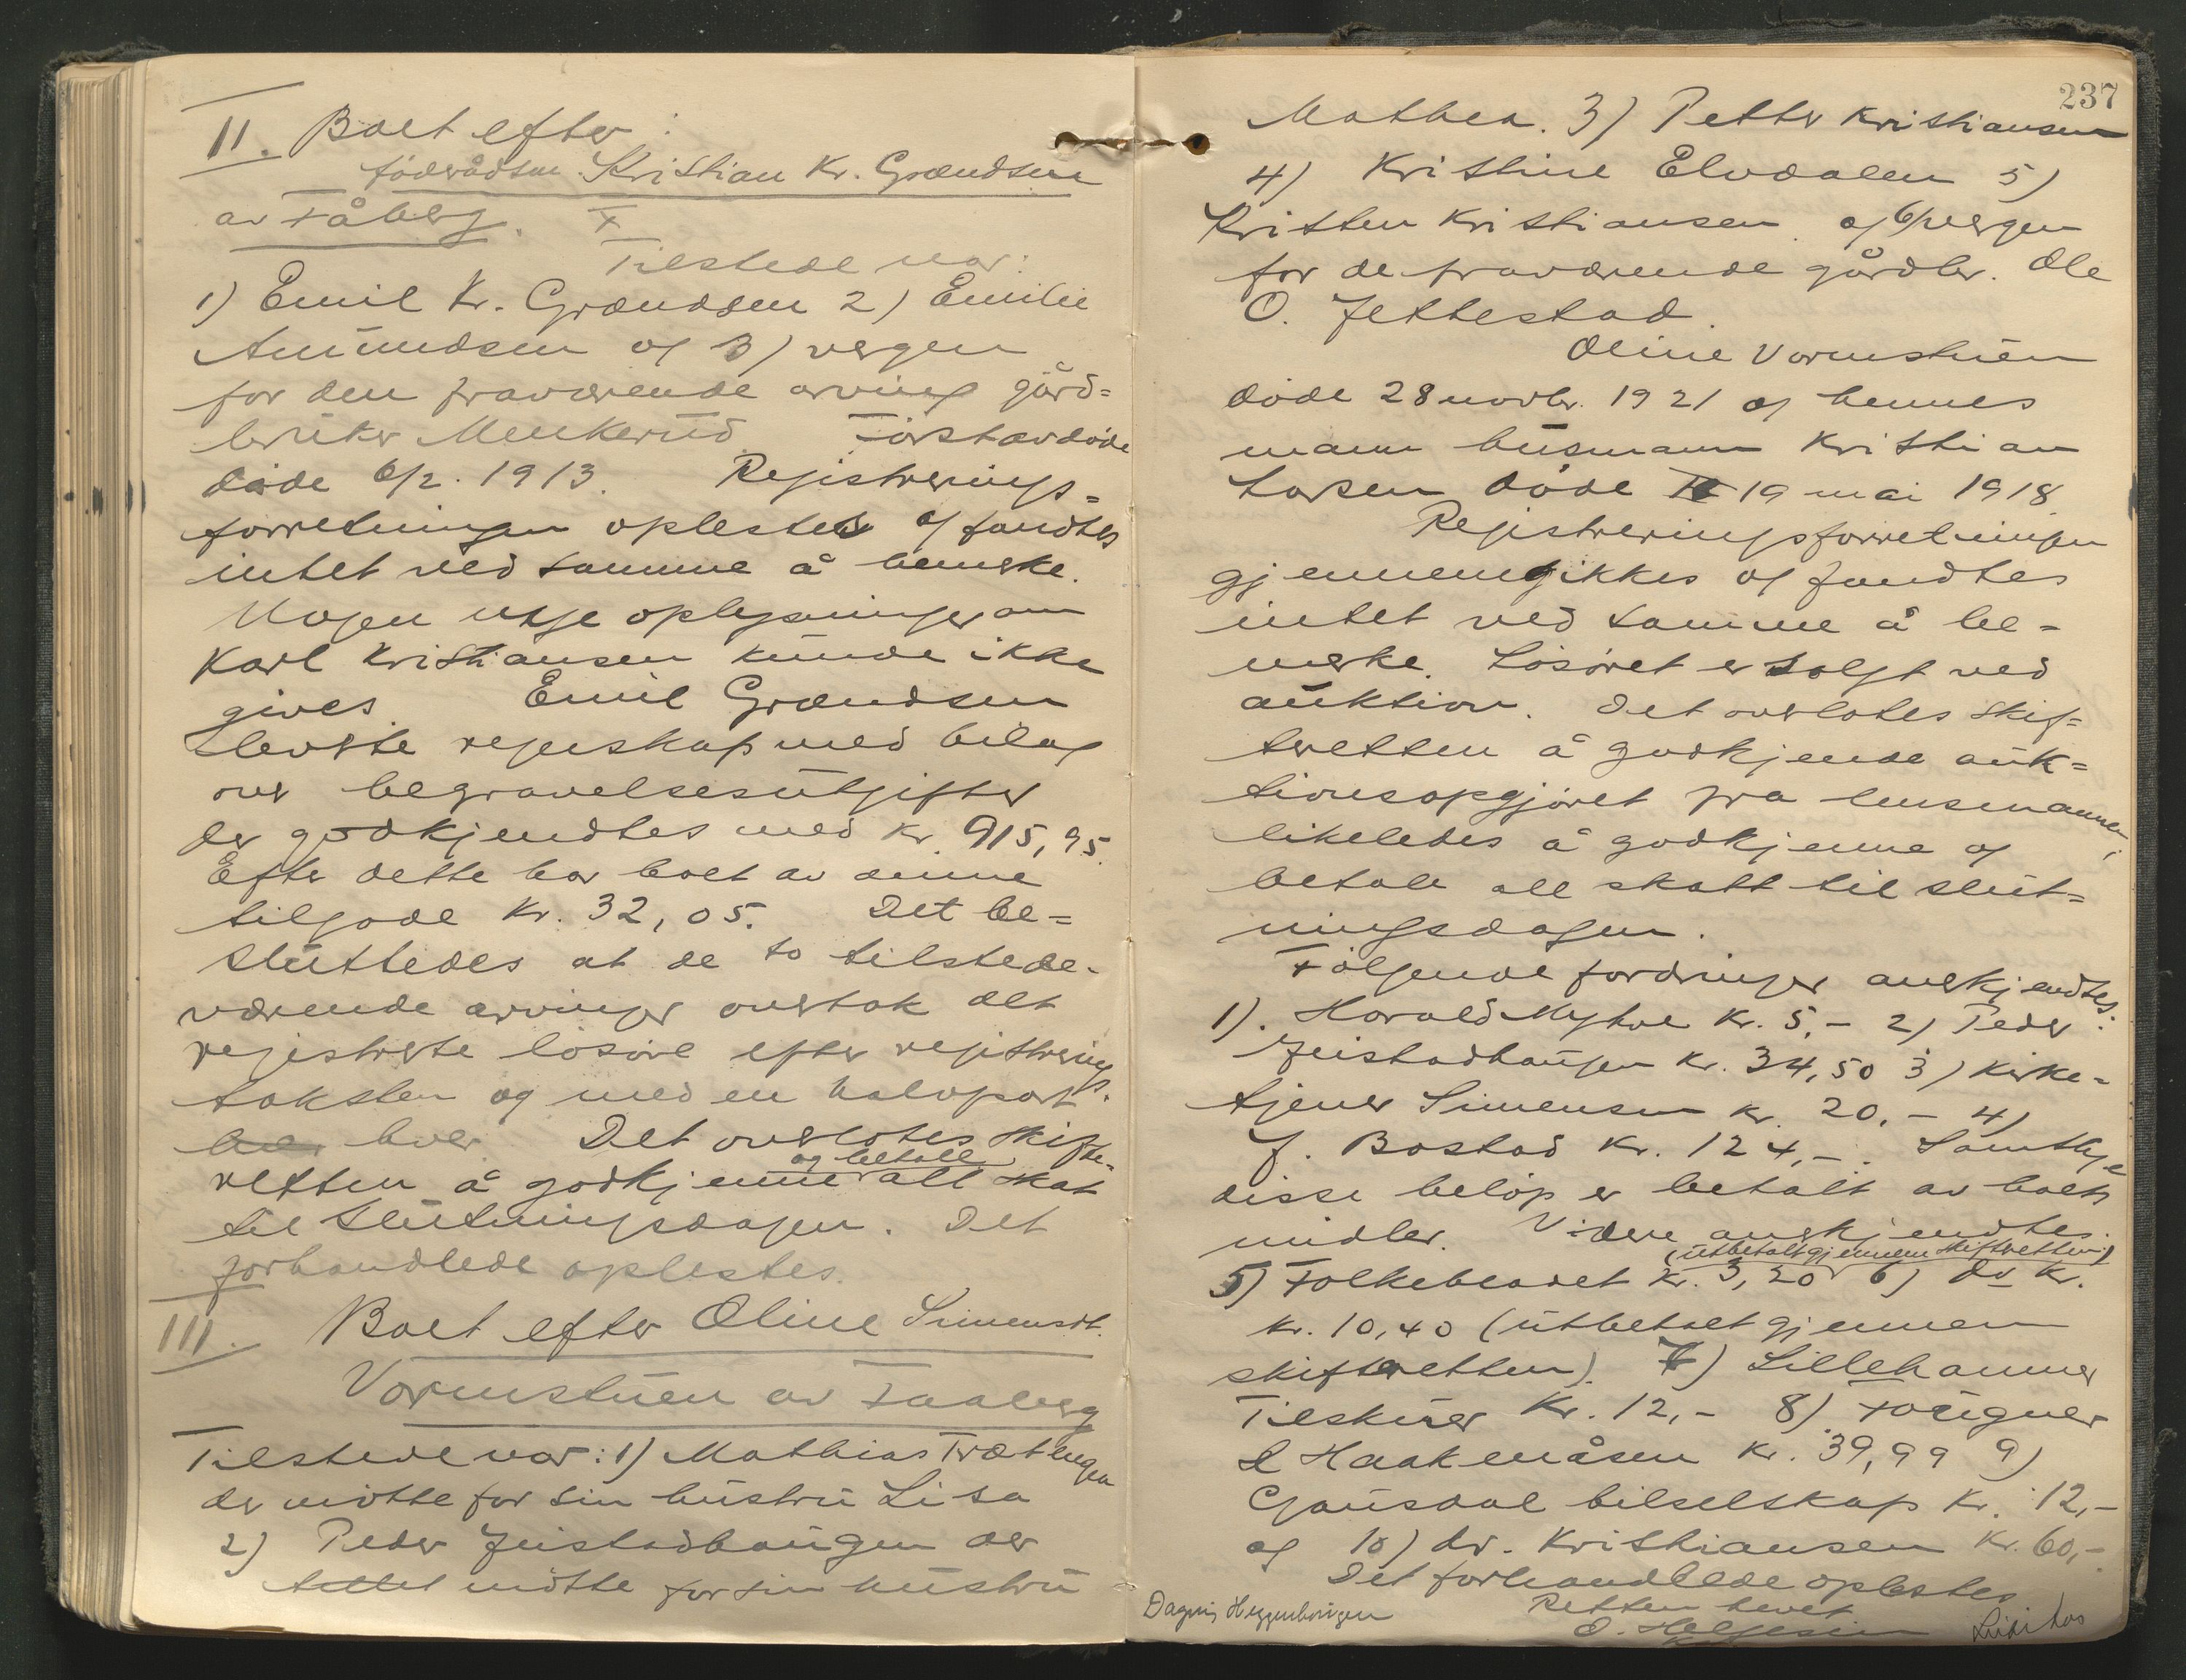 II. Boet efter:
föderådsm. Kristian Kr. Grændsen
av Fåberg.
Tilstede var:
1) Emil Kr. Grændsen 2) Emilie
Amundsen og 3) vergen
for den fraværende arving gård=
bruker Menkerud Förstavdöde
döde 6/2. 1913. Registrerings=
forretningen oplestes og fandtes
intet ved samme å bemerke.
Nogen nye oplysninger om
Karl Kristiansen kunde ikke
gives. Emil Grændsen
leverte regnskap med bilag
over begravelsesutgifter
der godkjendtes med kr. 915,95.
Efter dette har boet av denne
tilgode kr. 32,05. Det be=
sluttedes at de to tilstede-
værende arvinger overtok det
registrerte lösöre efter registrerings-
taksten og med en halvpart
hver. Det overlotes skifte-
retten å godkjenne og betale all skat
til slutningsdagen. Det
forhandlede oplestes.
III. Boet efter Oline Simensdt.
Vormstuen av Faaberg
Tilstede var: 1) Mathias Trætengen
der mötte for sin hustru Lisa
2) Peder Jeistadhaugen der
mötte for sin hustru
237
Mathea. 3) Petter Kristiansen
4) Kristine Elvdalen 5)
Kristen Kristiansen og 6) vergen
for de fraværende gårdbr. Ole
O. Jettestad.
Oline Vormstuen
döde 28 novbr. 1921 og hennes
mann husmann Kristian
Larsen döde 19 mai 1918.
Registreringsforretningen
gjennemgikkes og fandtes
intet ved samme å be=
merke. Lösöret er solgt ved
auktion. Det overlotes skif=
teretten å godkjende auk=
tionsopgjöret fra lensmannen,
likeledes å godkjenne og
betale all skatt til slut=
ningsdagen.
Fölgende fordringer anerkjendtes:
1). Harald Myhre kr. 5,- 2) Peder
Jeistadhaugen kr. 34,50 3) kirke=
tjener Simensen kr. 20,- 4)
J. Bostad kr. 124,-. Samtlige
disse belöp er betalt av boets
midler. Videre anerkjendtes
5) Folkebladet kr. 3,20 (utbetalt gjennem skifteretten) 6) do kr.
kr. 10,40 (utbetalt gjennem
skifteretten). 7) Lillehammer
Tilskuer kr. 12,- 8)
& Haakenåsen kr. 39,99 9)
Gausdal bilselskap kr. 12,-
og 10) dr. Kristiansen kr. 60,-
Det forhandlede oplestes
Retten hevet
O. Helgesen
Dagny Heggenhougen